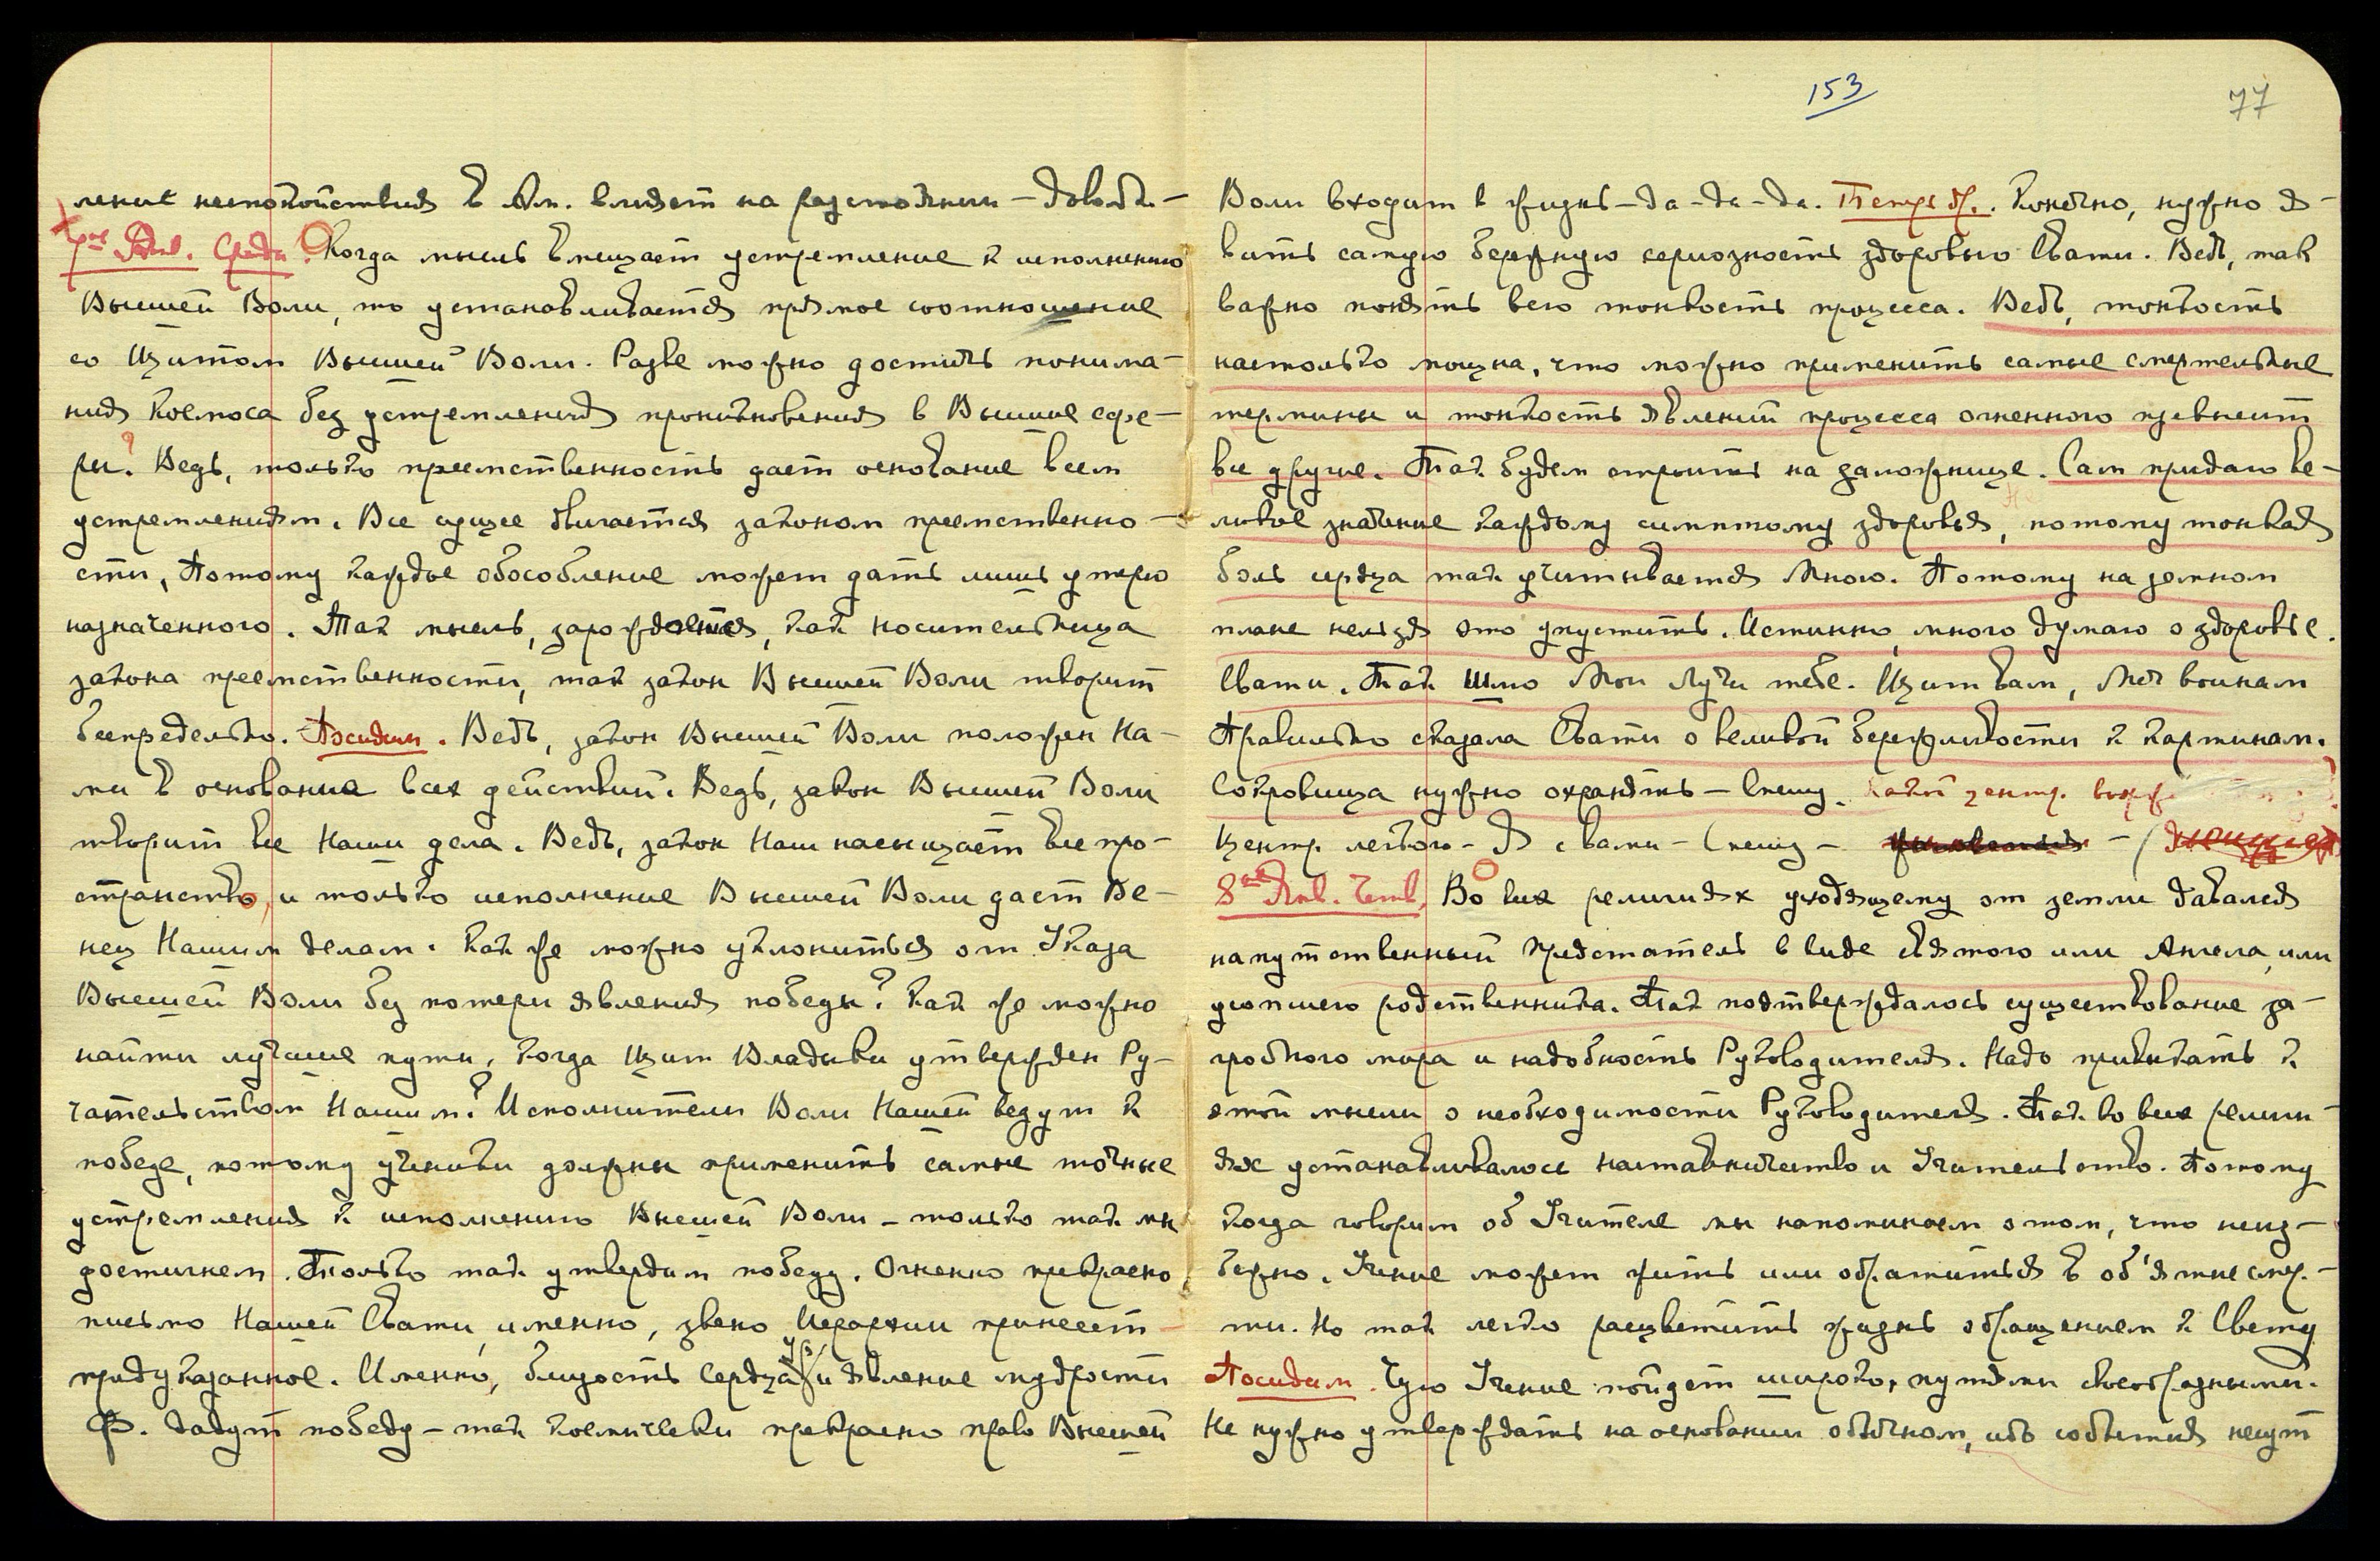 ление неспокойствия в Ам. влияет на расстоянии – довольно –
7ое Янв. Среда. Когда мысль вмещает устремление к исполнению
Высшей Воли, то устанавливается прямое соотношение
со Щитом Высшей Воли. Разве можно достичь понима-
ния Космоса без устремления проникновения в Высшие сфе-
ры? Ведь, только преемственность дает основание всем
устремлениям. Все сущее движется законом преемственно-
сти, Потому каждое обособление может дать лишь утерю
назначенного. Так мысль, зарождается, как носительница
закона преемственности, так закон Высшей Воли творит
беспредельно. Посидим. Ведь, закон Высшей Воли положен На-
ми в основание всех действий. Ведь, закон Высшей Воли
творит все Наши дела. Ведь, закон Наш насыщает все про-
странство, и только исполнение Высшей Воли дает Ве-
нец Нашим делам. Как же можно уклониться от Указа
Высшей Воли без потери явления победы? Как же можно
найти лучшие пути, когда Щит Владыки утвержден Ру-
чательством Нашим? Исполнители Воли Нашей ведут к
победе, потому ученики должны применить самые точные
устремления к исполнению Высшей Воли – только так мы
достигнем. Только так утвердим победу. Огненно прекрасно
письмо Нашей Свати, именно, звено Иерархии принесет
предуказанное. Именно, близость Сердца Ур. и явление мудрости
Ф. дадут победу – так космически прекрасно право Высшей
153
77
Воли входит в жизнь – да – да – да. Конечно, нужно я-
вить самую бережную сериозность здоровью Свати. Ведь, так
важно понять всю тонкость процесса. Ведь, тонкость
настолько мощна, что можно применить самые смертельные
термины и тонкость явлений процесса огненного превысит
все другие. Так будем строить на заложнице. Сам придаю ве-
ликое значение каждому симптому здоровья, потому тонкая
боль сердца так учитывается Мною. Потому на земном
плане нельзя это упустить. Истинно, много думаю о здоровье
Свати. Так Шлю Мои Лучи тебе. Щит вам, Меч воинам
Правильно сказала Свати о великой бережливости к картинам.
Сокровища нужно охранять – Спешу. Какой центр.
Центр легкого – Я с вами – Спешу –
8ое Янв. Четв. Во всех религиях уходящему от земли давался
напутственный Предстатель в виде Святого или Ангела, или
усопшего родственника. Так подтверждалось существование за-
гробного мира и надобность Руководителя. Надо привыкать к
этой мысли о необходимости Руководителя. Так во всех религи-
ях устанавливалось наставничество и Учительство. Потому
когда говорим об Учителе мы напоминаем о том, что неиз-
бежно. Учение может жить или обратиться в об'ятие смер-
ти. Но так легко расцветить жизнь обращением к Свету
Посидим. Чую Учение пойдет широко, путями своеобразными.
Не нужно утверждать на основании обычном, ибо события несут